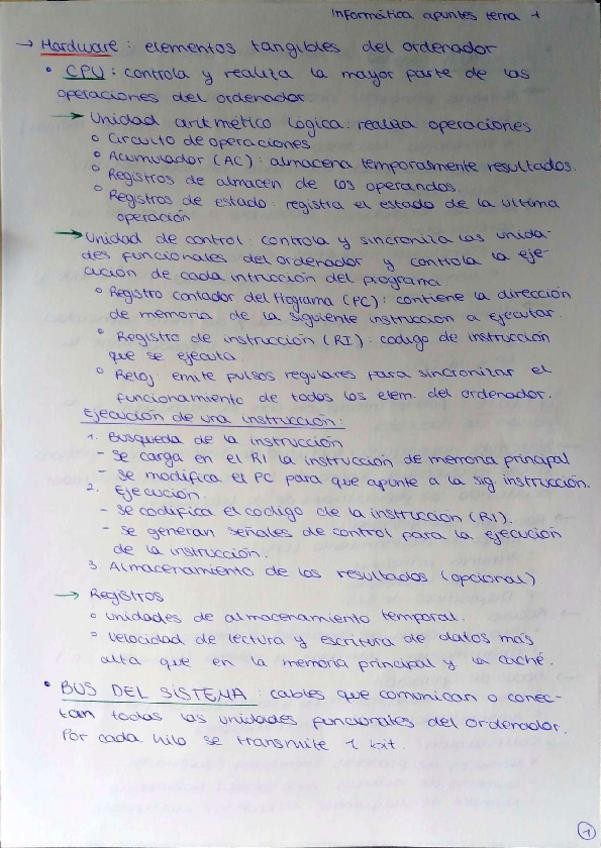 Informática apuntes tema 1
→ Hardware: elementos tangibles del ordenador
• CPU: controla y realiza la mayor parte de las
operaciones del ordenador
→ Unidad aritmético lógica: realiza operaciones
o Circuito de operaciones
o Acumulador (AC): almacena temporalmente resultados.
o Registros de almacen de los operandos.
o Registros de estado: registra el estado de la última
operación
→ Unidad de control: controla y sincroniza las unida-
des funcionales del ordenador y controla la eje-
cución de cada intrucción del programa.
o Registro contador del Programa (PC): contiene la dirección
de memoria de la siguiente instrucción a ejecutar.
o Registro de instrucción (RI): codigo de instrucción
que se ejecuta.
o Reloj: emite pulsos regulares para sincronizar el
funcionamiento de todos los elem. del ordenador.
Ejecución de una instrucción:
1. Busqueda de la instrucción
- Se carga en el RI la instrucción de memoria principal
- se modifica el PC para que apunte a la sig. instrucción.
2. Ejecución
- Se codifica el codigo de la instrucción (RI).
- se generan señales de control para la ejecución
de la instrucción.
3. Almacenamiento de los resultados (opcional)
→ Registros
o Unidades de almacenamiento temporal.
o Velocidad de lectura y escritura de datos más
alta que en la memoria principal y la caché.
• BUS DEL SISTEMA: cables que comunican o conec-
tan todas las unidades funcionales del ordenador.
Por cada hilo se transmite 1 bit.
1